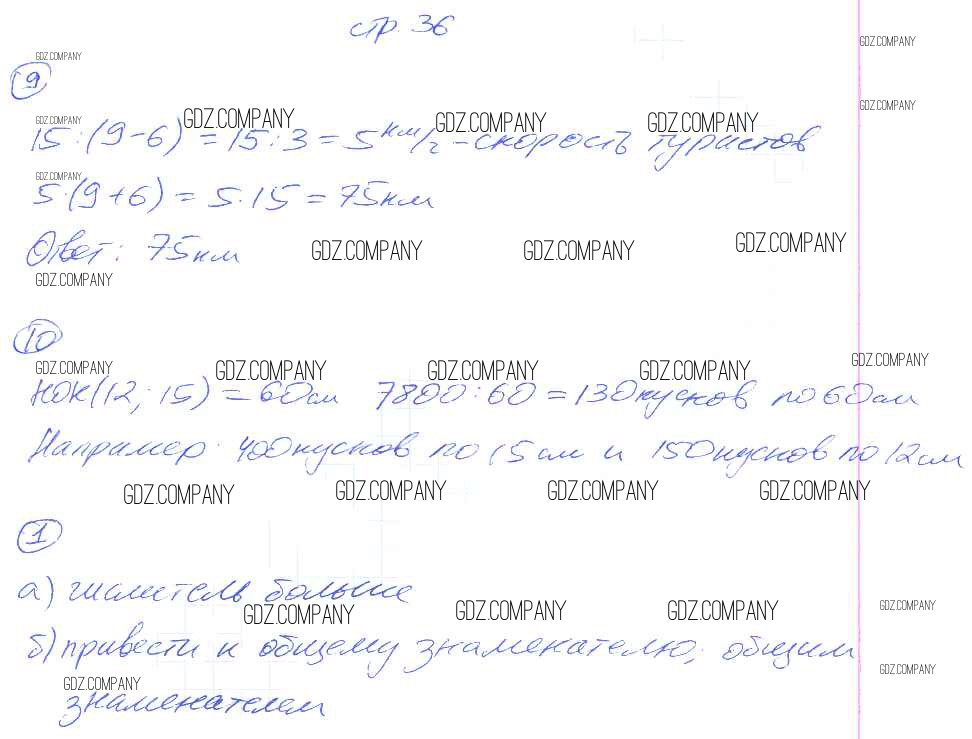 стр. 36
GDZ.COMPANY GDZ.COMPANY
9
GDZ.COMPANY GDZ.COMPANY GDZ.COMPANY GDZ.COMPANY GDZ.COMPANY
15:(9-6)=15:3=5км/г-скорость туристов
GDZ.COMPANY
5·(9+6)=5·15=75км
Ответ: 75км GDZ.COMPANY GDZ.COMPANY GDZ.COMPANY
GDZ.COMPANY
10
GDZ.COMPANY GDZ.COMPANY GDZ.COMPANY GDZ.COMPANY GDZ.COMPANY
НОК(12; 15)=60см 7800:60=130кусков по 60см
Например: 400кусков по 15см и 150кусков по 12см
GDZ.COMPANY GDZ.COMPANY GDZ.COMPANY GDZ.COMPANY
1
а) числитель больше
GDZ.COMPANY GDZ.COMPANY GDZ.COMPANY GDZ.COMPANY
б) привести к общему знаменателю; общим
GDZ.COMPANY GDZ.COMPANY
знаменателем